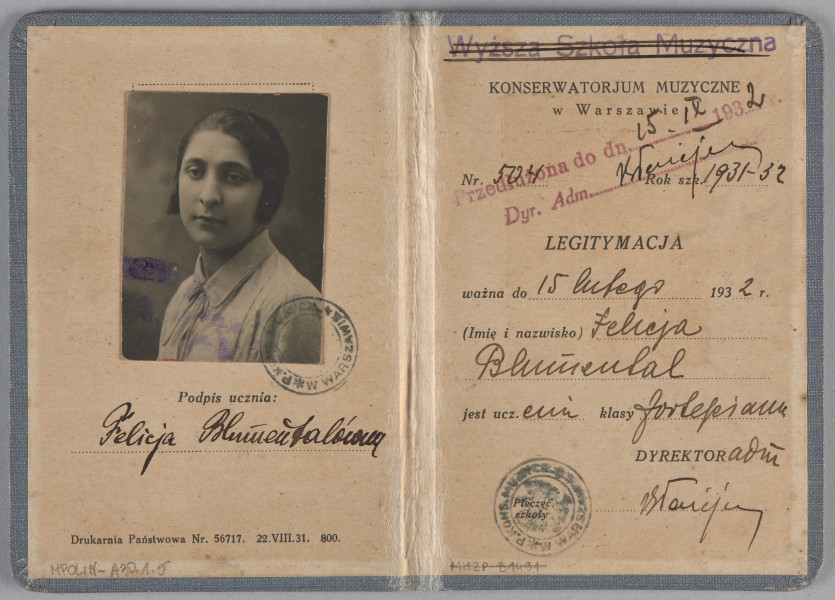 Podpis ucznia:
Felicja Blumentalówna
Drukarnia Państwowa Nr. 56717. 22.VIII.31. 800.
MPOLIN-A32.1.5
Wyższa Szkoła Muzyczna
KONSERWATORJUM MUZYCZNE
w Warszawie
Przedłużona do dn. 15. IX 1932
Dyr. Adm.
Nr. 504 Rok szk. 1931-32
LEGITYMACJA
ważna do 15 lutego 1932 r.
(Imię i nazwisko) Felicja
Blumental
jest ucz. enn klasy fortepianu
DYREKTOR adm
Pieczęć
szkoły
MHŻP-B1431